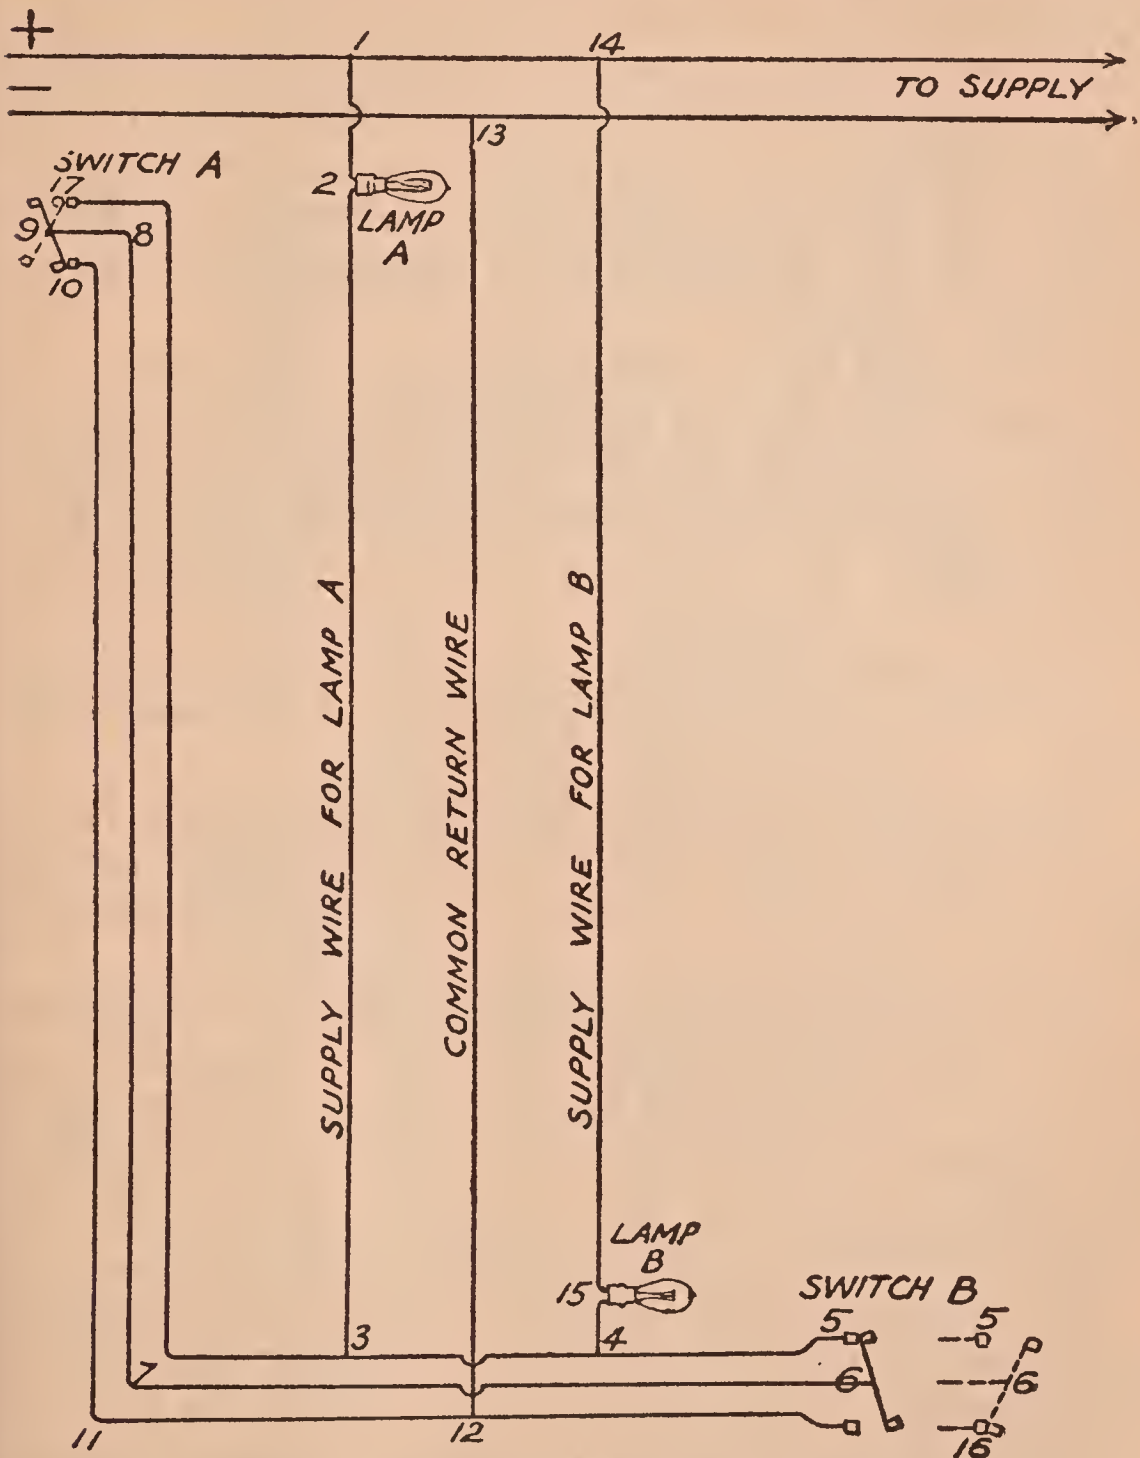 +
1
14
−
TO SUPPLY
13
SWITCH A
17
2
LAMP
A
9
8
10
SUPPLY WIRE FOR LAMP A
COMMON RETURN WIRE
SUPPLY WIRE FOR LAMP B
LAMP
B
15
SWITCH B
5
5
3
4
6
6
7
11
12
16